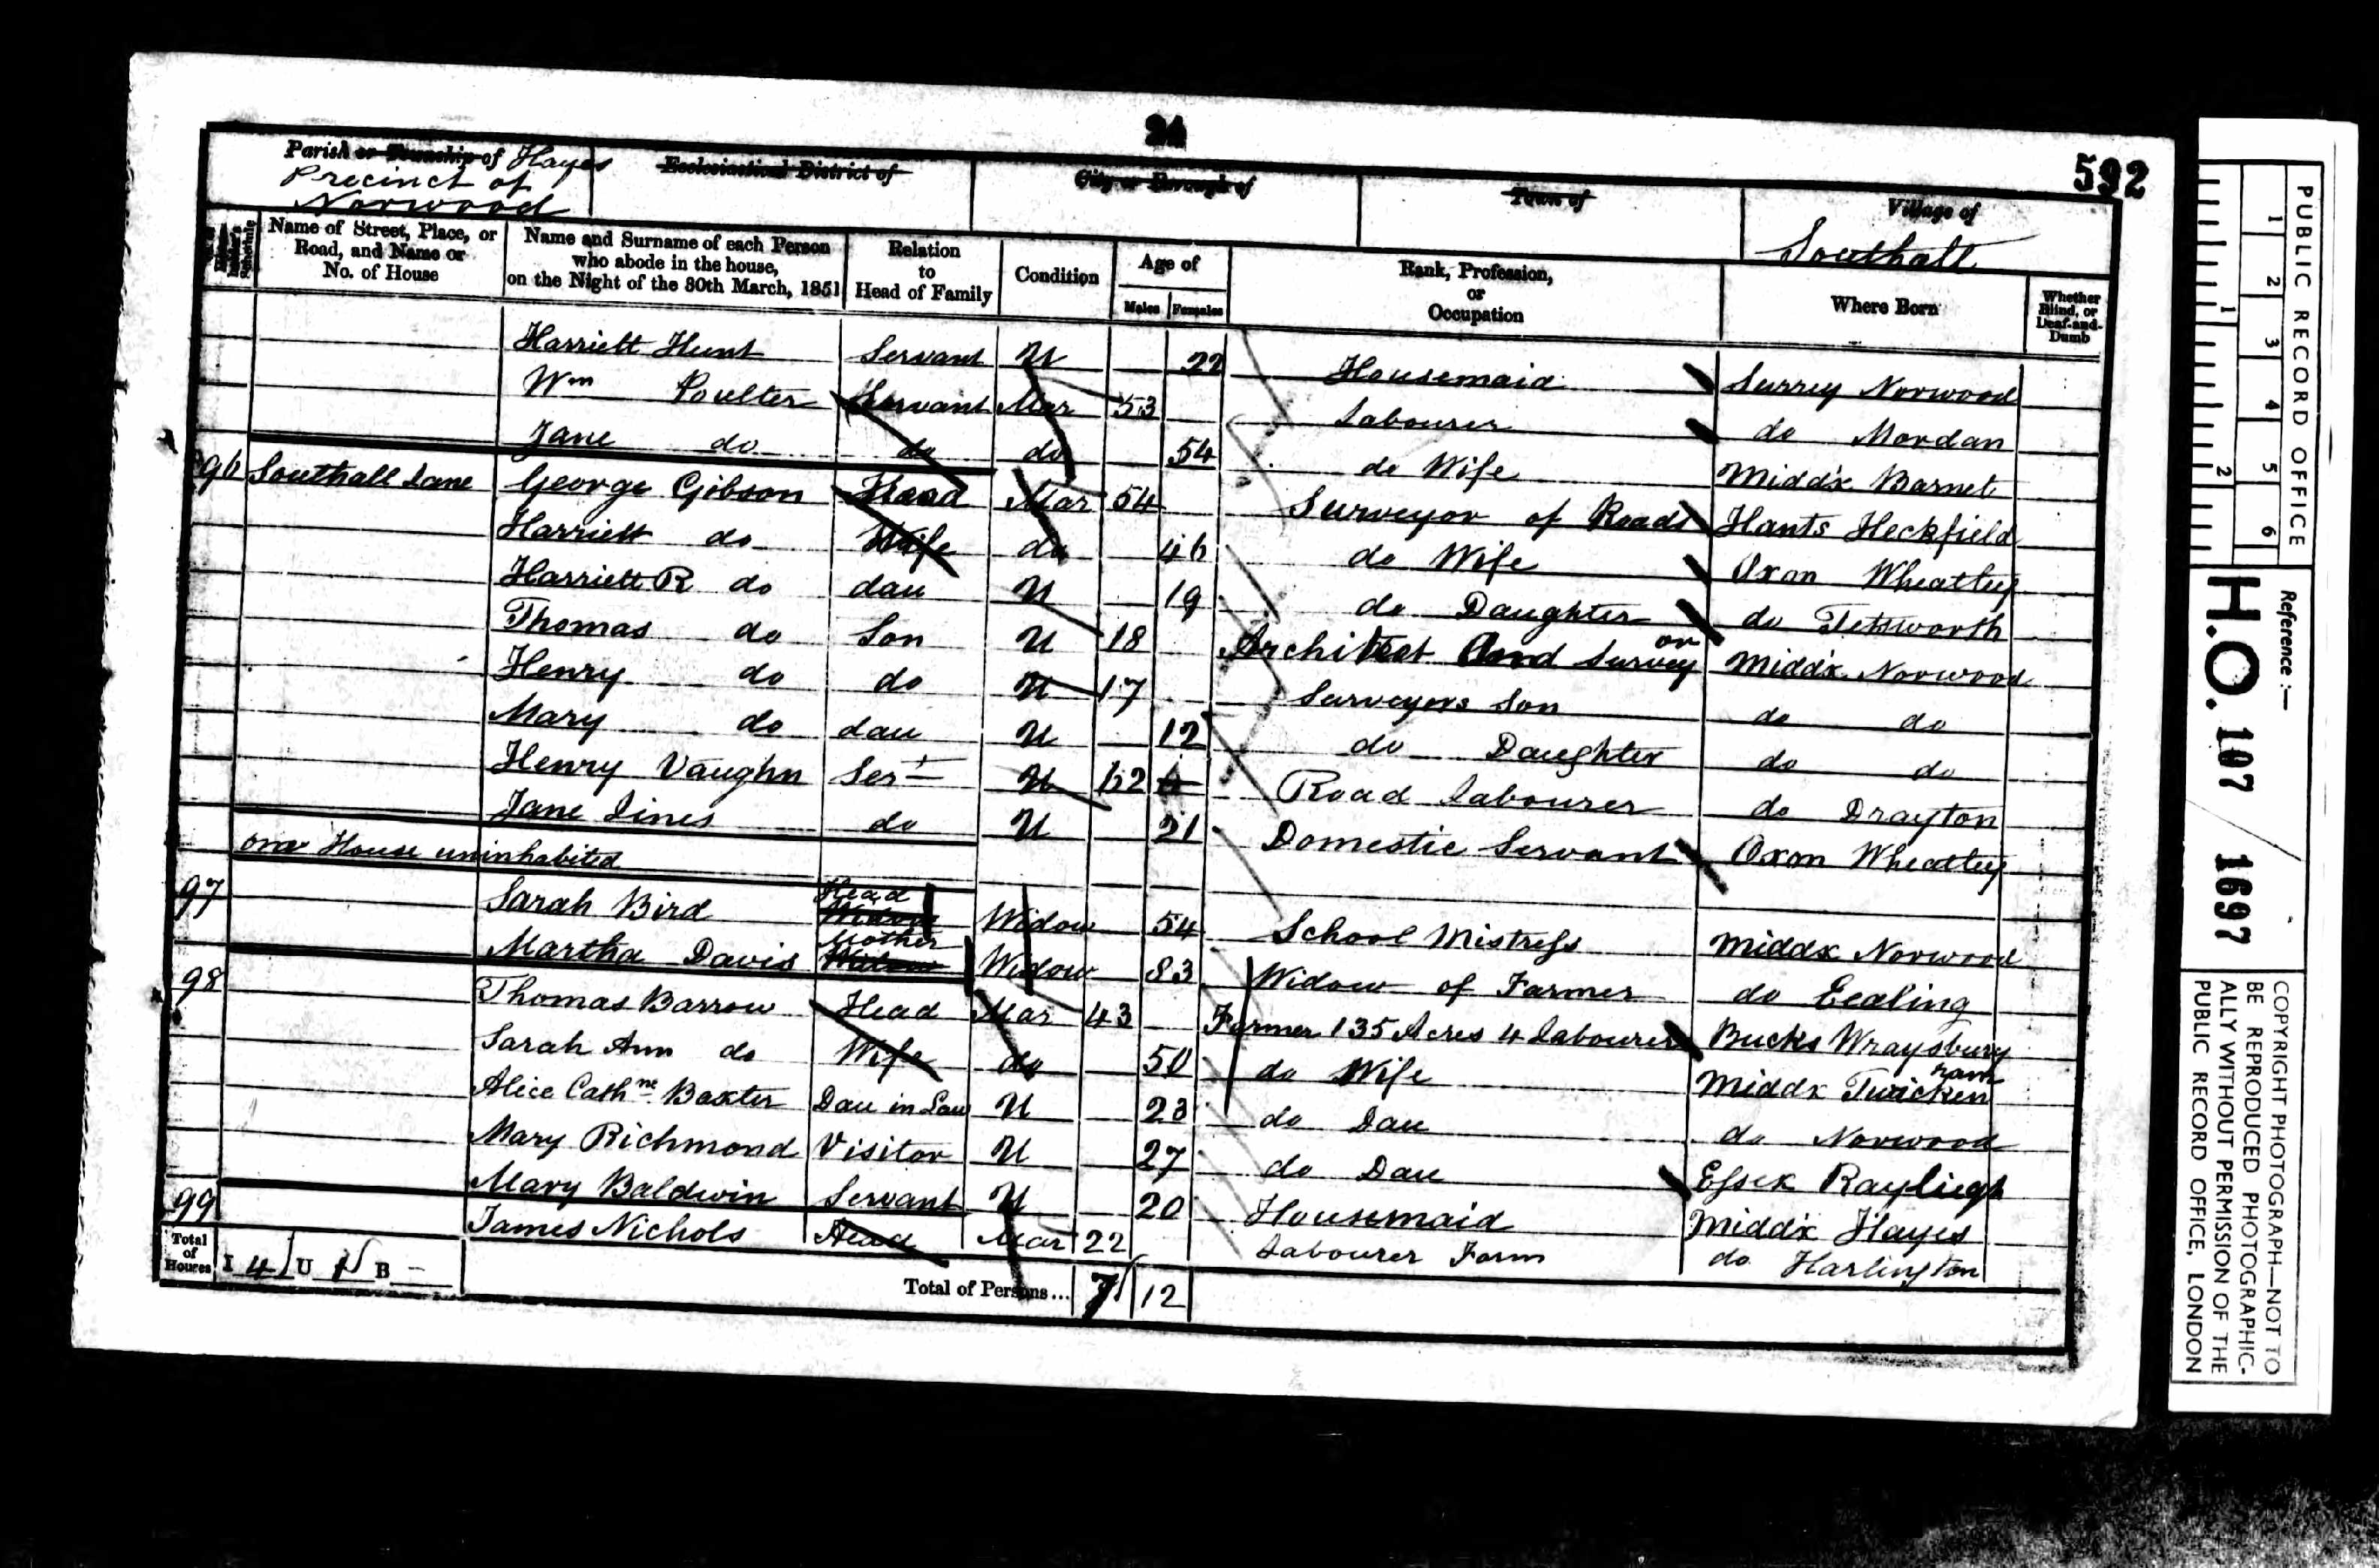 24
592
Parish or Township of Hayes Precinct of Norwood
Ecclesiastical District of
City or Borough of
Town of
Village of Southall
Name of Street, Place, or Road, and Name or No. of House
Name and Surname of each Person who abode in the house, on the Night of the 30th March, 1851
Relation to Head of Family
Condition
Age of
Males Females
Rank, Profession, or Occupation
Where Born
Whether Blind, or Deaf-and-Dumb
Harriett Hunt Servant U 22 Housemaid Surrey Norwood
Wm Poulter Servant Mar 53 Labourer do Mordan
Jane do do do 54 do Wife Middx Barnet
96 Southall Lane George Gibson Head Mar 54 Surveyor of Roads Hants Heckfield
Harriett do Wife do 46 do Wife Oxon Wheatley
Harriett R do dau U 19 do Daughter do Tetsworth
Thomas do Son U 18 Architect And Surveyor Middx Norwood
Henry do do U 17 Surveyors Son do do
Mary do dau U 12 do Daughter do do
Henry Vaughn Sert U 62 Road Labourer do Drayton
Jane Lines do U 21 Domestic Servant Oxon Wheatley
one House uninhabited
97 Sarah Bird Head Widow 54 School Mistress Middx Norwood
Martha Davis Mother Widow 83 Widow of Farmer do Eealing
98 Thomas Barrow Head Mar 43 Farmer 135 Acres 4 Labourers Bucks Wraysbury
Sarah Ann do Wife do 50 do Wife Middx Twickenham
Alice Cathne Baxter Dau in Law U 23 do Dau do Norwood
Mary Richmond Visitor U 27 do Dau Essex Rayliegh
Mary Baldwin Servant U 20 Housemaid Middx Hayes
99 James Nichols Head Mar 22 Labourer Farm do Harlington
Total of Houses I 4 U 1 B –
Total of Persons... 7 12
PUBLIC RECORD OFFICE
1 2 3 4 5 6
1 2
Reference :—
H.O. 107 / 1697
COPYRIGHT PHOTOGRAPH—NOT TO
BE REPRODUCED PHOTOGRAPHIC-
ALLY WITHOUT PERMISSION OF THE
PUBLIC RECORD OFFICE, LONDON